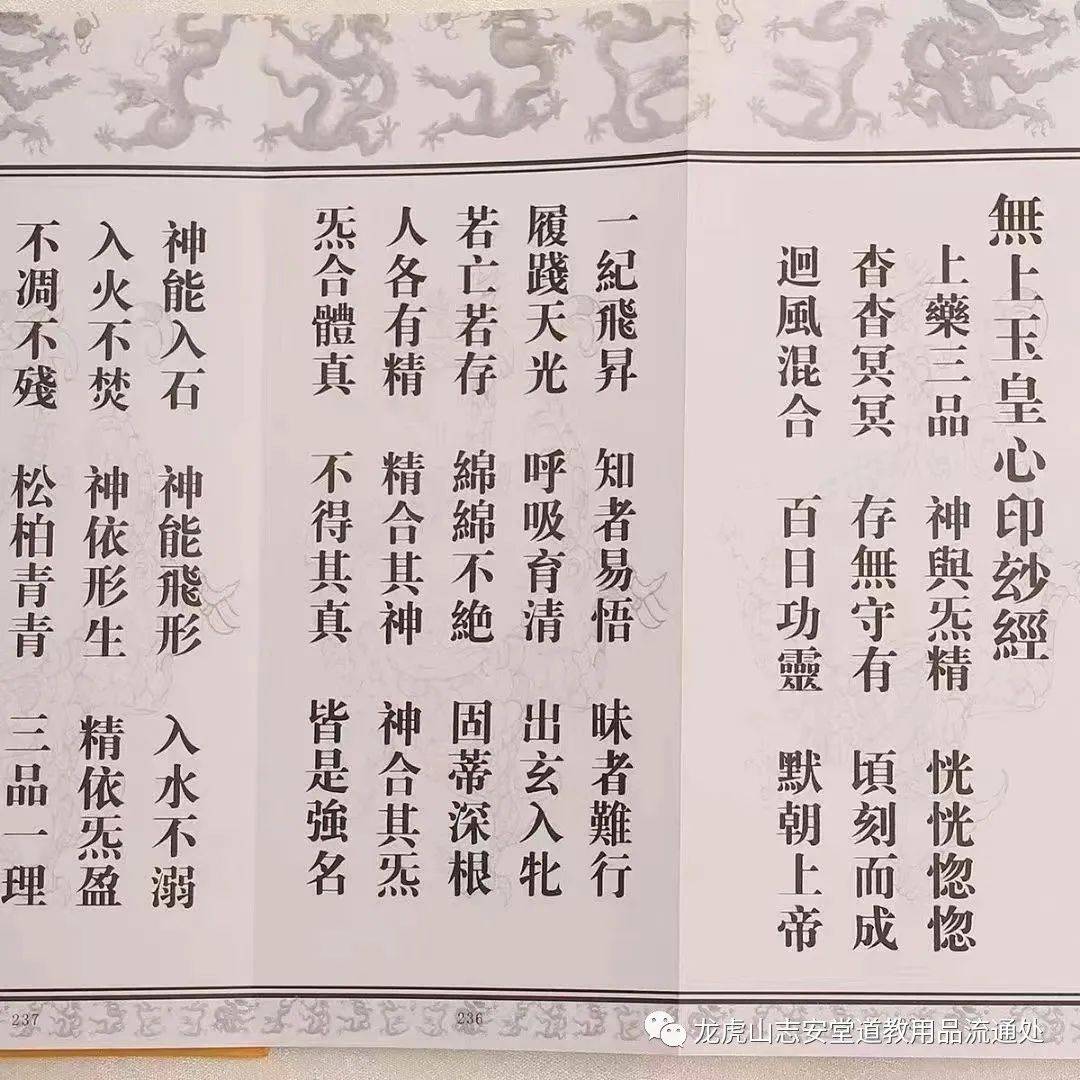 無上玉皇心印玅經
上藥三品 神與炁精 恍恍惚惚
杳杳冥冥 存無守有 頃刻而成
迴風混合 百日功靈 默朝上帝
一紀飛昇 知者易悟 昧者難行
履踐天光 呼吸育清 出玄入牝
若亡若存 綿綿不絶 固蒂深根
人各有精 精合其神 神合其炁
炁合體真 不得其真 皆是強名
神能入石 神能飛形 入水不溺
入火不焚 神依形生 精依炁盈
不凋不殘 松柏青青 三品一理
236
237
龙虎山志安堂道教用品流通处